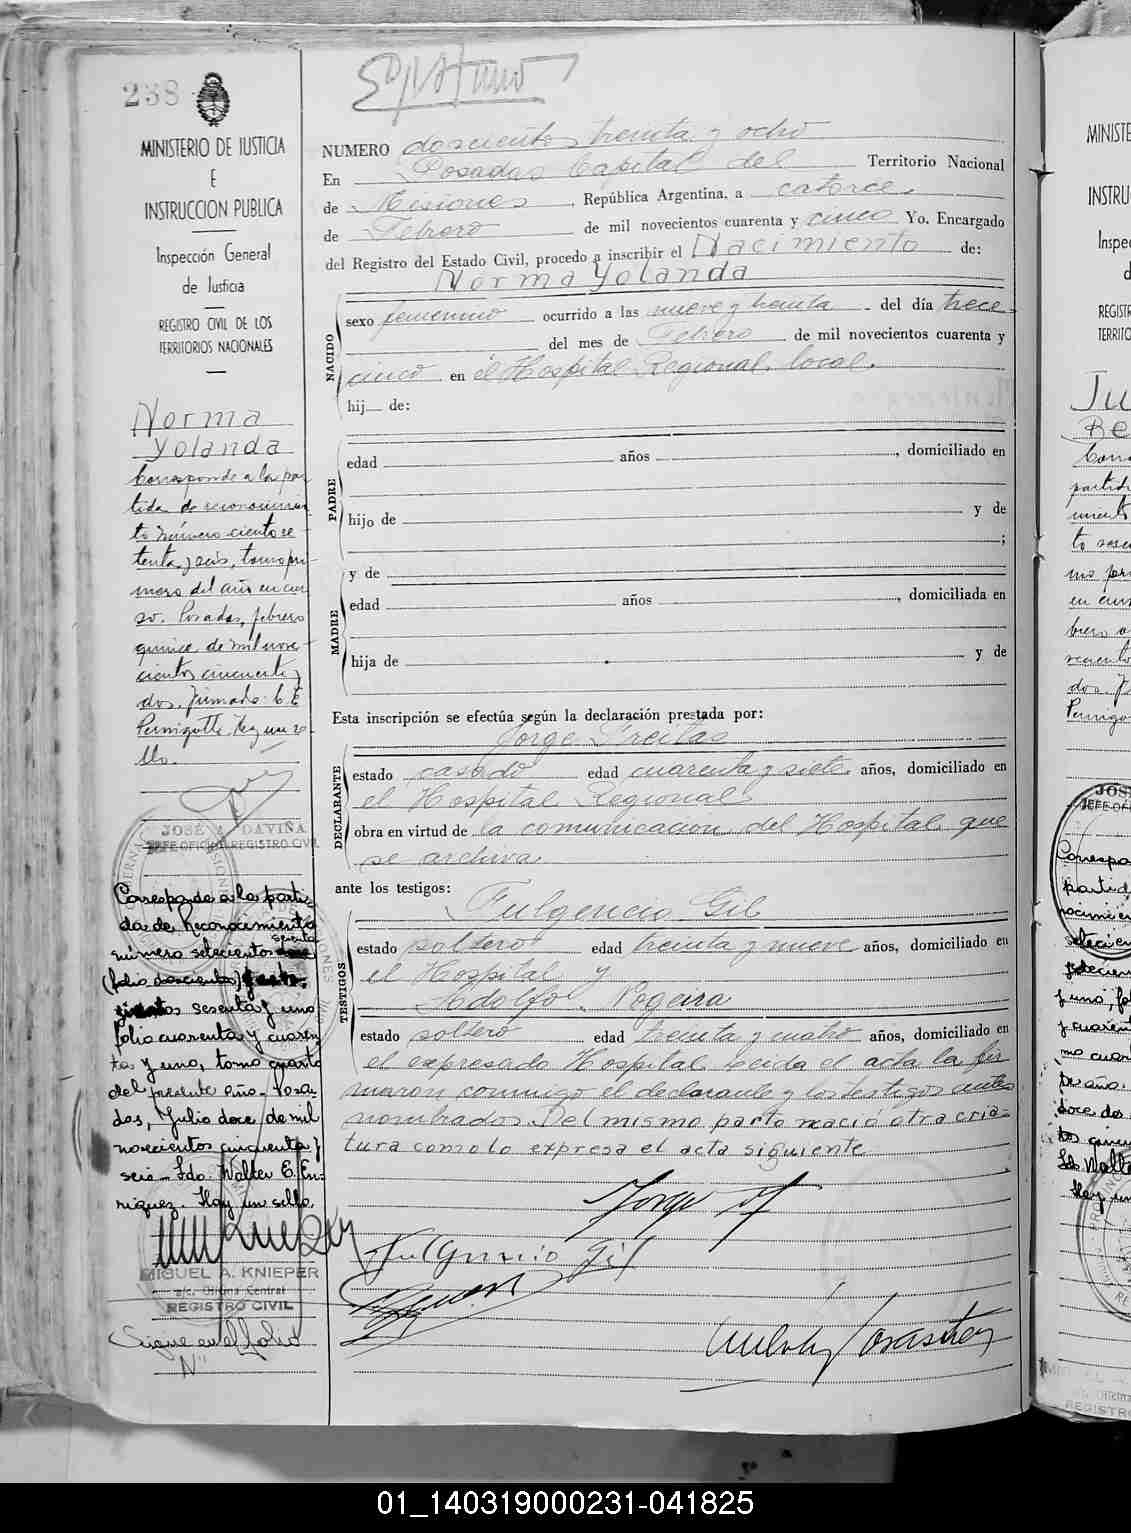 238
MINISTERIO DE JUSTICIA
E
INSTRUCCION PUBLICA
Inspección General
de Justicia
REGISTRO CIVIL DE LOS
TERRITORIOS NACIONALES
Norma
Yolanda
Corresponde a la par
tida de reconocimien
to número ciento se
tenta y seis, tomo pri-
mero del año en cur
so. Posadas, febrero
quince de mil nove-
cientos cincuenta y
dos. Firmado: C. E.
Pernigotti. Hay un se-
llo.
JOSÉ A. DAVIÑA
JEFE OFICINA REGISTRO CIVIL
Corresponde a la parti-
da de Reconocimiento
número setecientos
sesenta
(folio doscientos)
sesenta y uno
folio cuarenta y cuaren
ta y uno, tomo cuarto
del presente año.- Posa-
das, Julio doce de mil
novecientos cincuenta y
seis.- Fdo: Walter E. En-
riquez. Hay un sello.
MIGUEL A. KNIEPER
a/c. Oficina Central
REGISTRO CIVIL
Sigue en el folio
"N"
NUMERO doscientos treinta y ocho
En Posadas Capital del Territorio Nacional
de Misiones, República Argentina, a catorce
de Febrero de mil novecientos cuarenta y cinco Yo, Encargado
del Registro del Estado Civil, procedo a inscribir el Nacimiento de:
Norma Yolanda
NACIDO
sexo femenino ocurrido a las nueve y treinta del día trece-
del mes de Febrero de mil novecientos cuarenta y
cinco en el Hospital Regional local.
hij de:
PADRE
edad años, domiciliado en
hijo de y de
;
y de
MADRE
edad años, domiciliada en
hija de y de
Esta inscripción se efectúa según la declaración prestada por:
Jorge Freitas
DECLARANTE
estado casado edad cuarenta y siete años, domiciliado en
el Hospital Regional
obra en virtud de la comunicacion del Hospital que
se archiva
ante los testigos:
Fulgencio Gil
TESTIGOS
estado soltero edad treinta y nueve años, domiciliado en
el Hospital y
Adolfo Nogeira
estado soltero edad treinta y cuatro años, domiciliado en
el expresado Hospital Leida el acta la fir
maron conmigo el declarante y los testigos antes
nombrados. Del mismo parto nació otra cria-
tura como lo expresa el acta siguiente
Jorge
Fulgencio Gil
MINISTE
INSTRU
Inspec
d
REGISTR
TERRITO
Ju
Re
01_140319000231-041825